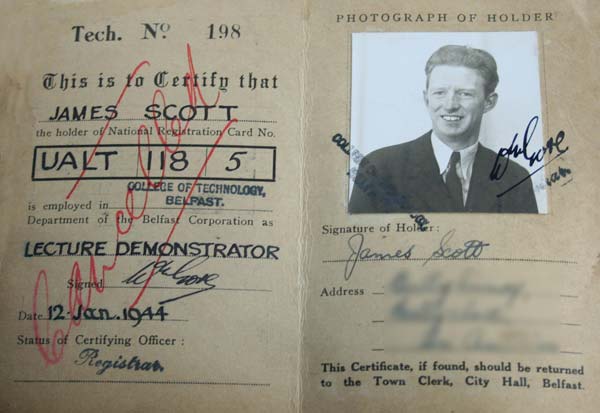 Tech. Nº 198
This is to Certify that
JAMES SCOTT
the holder of National Registration Card No.
UALT 118 5
COLLEGE OF TECHNOLOGY,
BELFAST.
is employed in
Department of the Belfast Corporation as
LECTURE DEMONSTRATOR
Signed
Date 12-Jan. 1944
Status of Certifying Officer :
Registrar.
Cancelled
PHOTOGRAPH OF HOLDER
Signature of Holder :
James Scott
Address
This Certificate, if found, should be returned
to the Town Clerk, City Hall, Belfast.